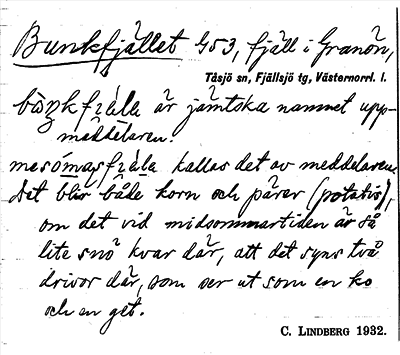 Bunkfjället 453, fjäll i Granön,
Tåsjö sn, Fjällsjö tg, Västernorrl. l.
är jämtska namnet upp-
meddelaren.
kallas det av meddelaren.
Det blir både korn och pärer (potatis),
om det vid midsommartiden är så
lite snö kvar där, att det syns två
drivor där, som ser ut som en ko
och en get.
C. LINDBERG 1932.